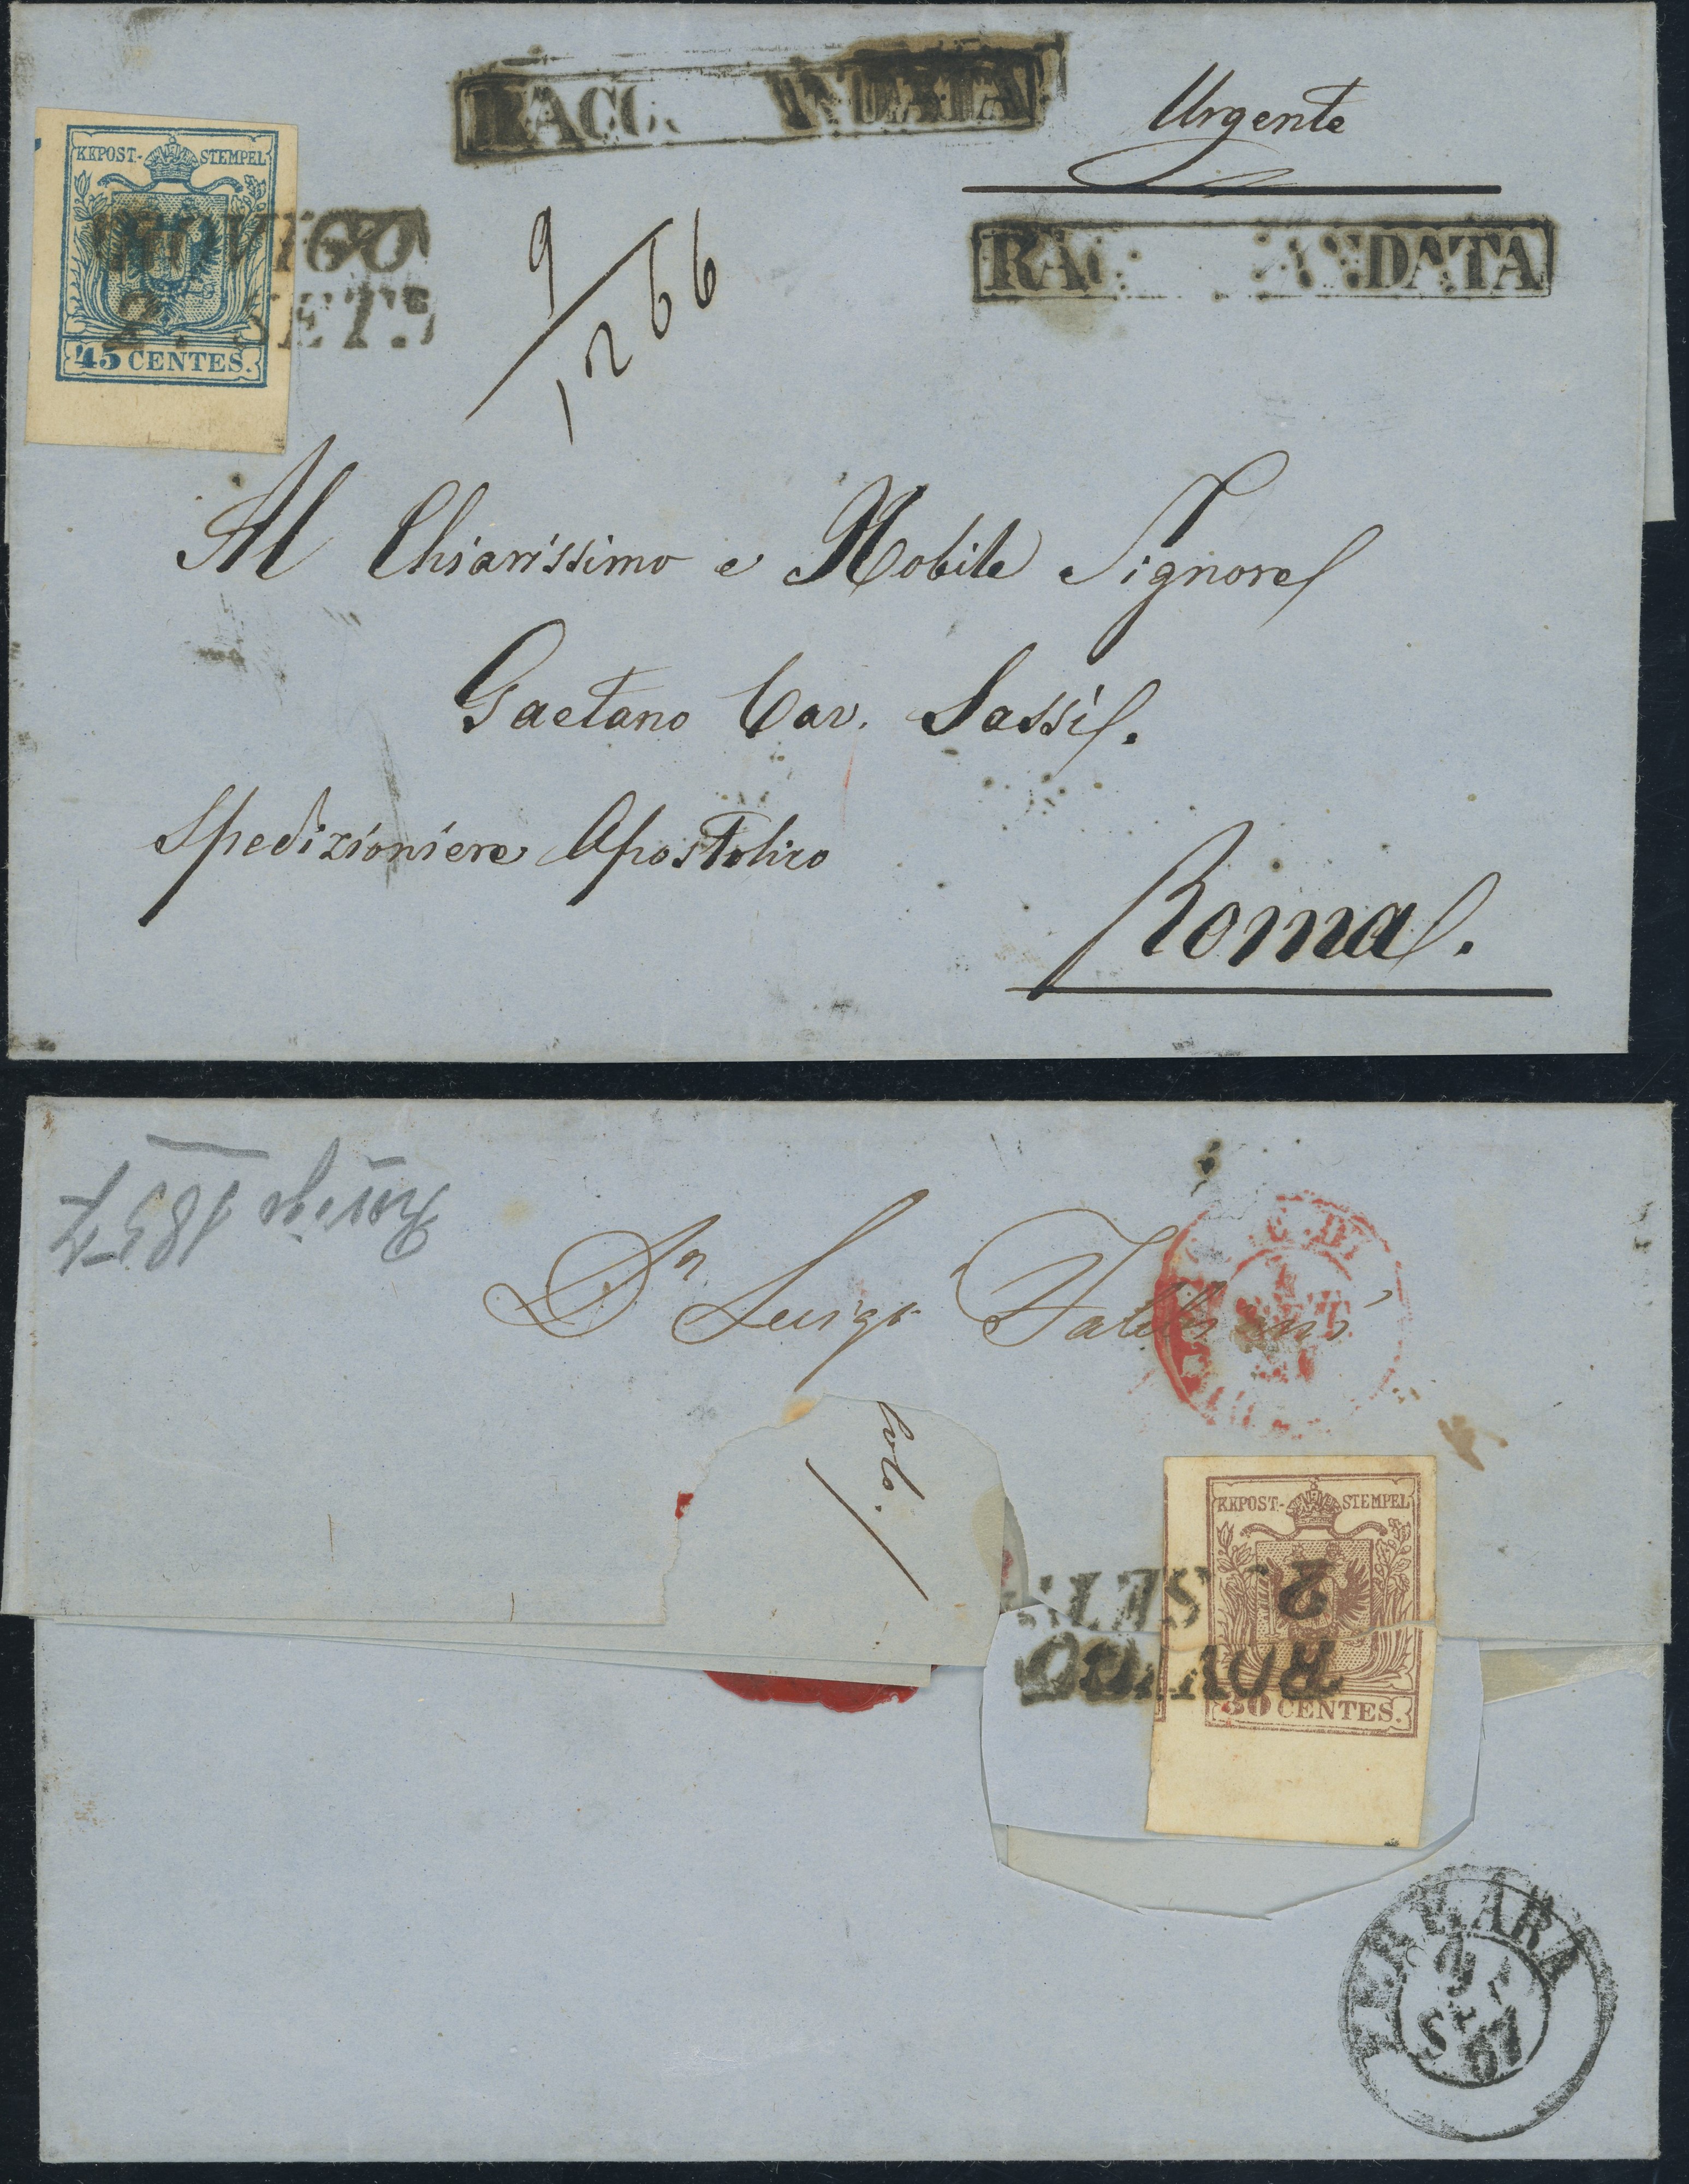 RACC NDATA
Urgente
KKPOST-STEMPEL
45 CENTES.
ROVIGO
2. SETT
9/1266
RAC ANDATA
Al Chiarissimo e Nobile Signore
Gaetano Cav. Sassi.
Spedizioniere Apostolico
Roma.
Rovigo 1857
Dn Luigi
KKPOST-STEMPEL
30 CENTES.
ROVIGO
2 SETT
FERRARA
SET